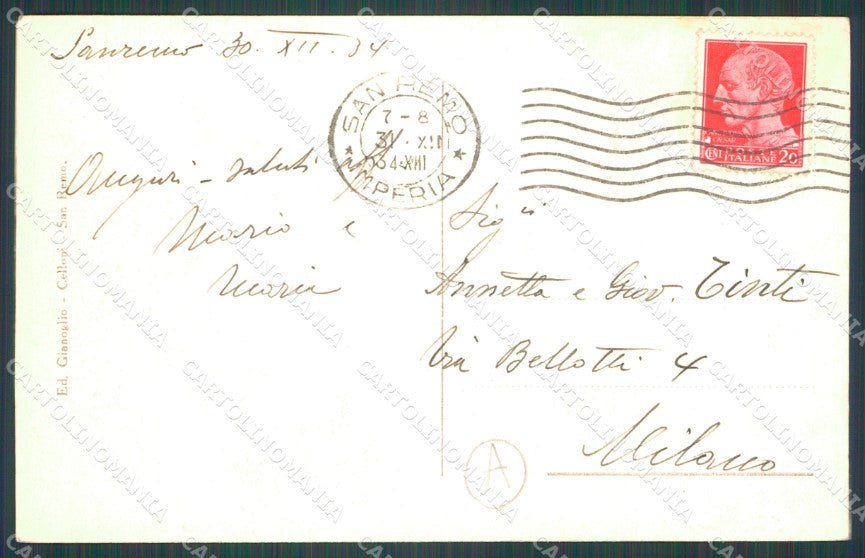 Sanremo 30. XII. 34
SAN REMO
7-8
31.XII
34-XIII
IMPERIA
CENT ITALIANE 20
Auguri - saluti
Mario e
Maria
Sig^ri
Annetta e Giov. Tinti
Via Bellotti 4
Milano
A
Ed. Gianoglio - Celloni - San Remo.
CARTOLINOMANIA